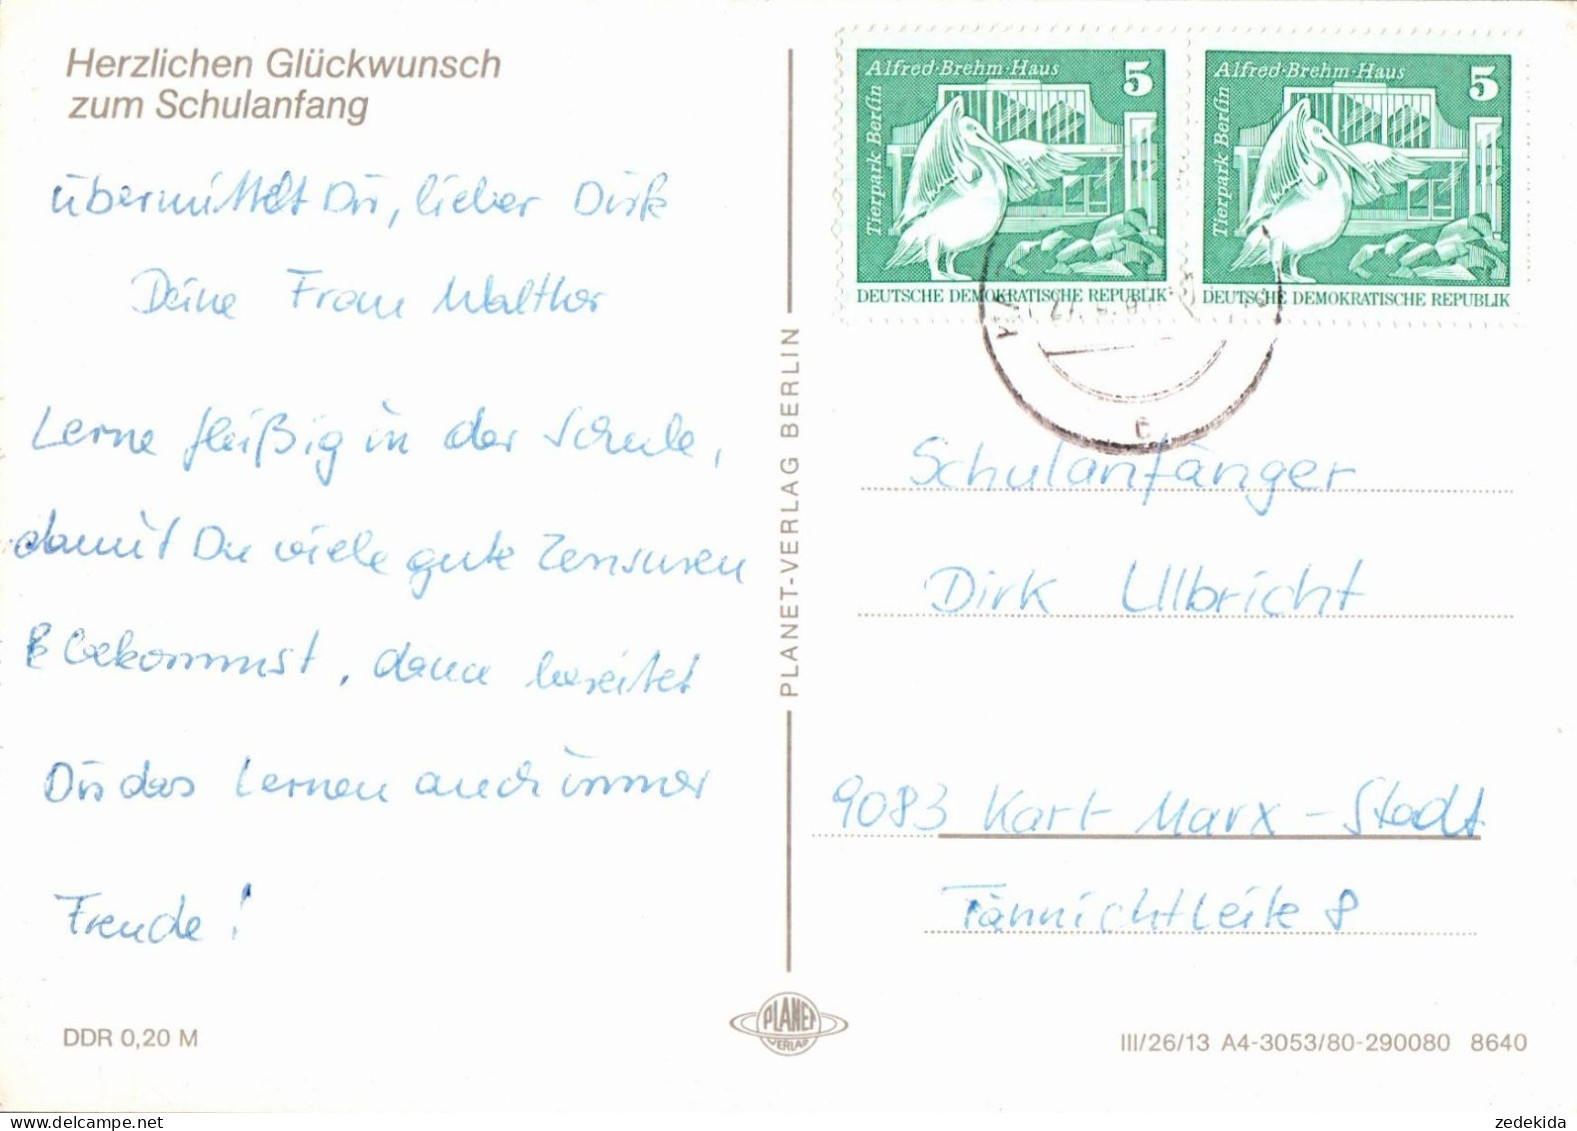 Herzlichen Glückwunsch
zum Schulanfang
übermittelt Dir, lieber Dirk
Deine Frau Walther
Lerne fleißig in der Schule,
damit Du viele gute Zensuren
bekommst, dann bereitet
Dir das Lernen auch immer
Freude!
DDR 0,20 M
PLANET-VERLAG BERLIN
PLANET
VERLAG
Alfred-Brehm-Haus 5
Tierpark Berlin
DEUTSCHE DEMOKRATISCHE REPUBLIK
Alfred-Brehm-Haus 5
Tierpark Berlin
DEUTSCHE DEMOKRATISCHE REPUBLIK
c
Schulanfänger
Dirk Ullbricht
9083 Karl-Marx-Stadt
Tännichtleite 8
III/26/13 A4-3053/80-290080 8640
zedekida